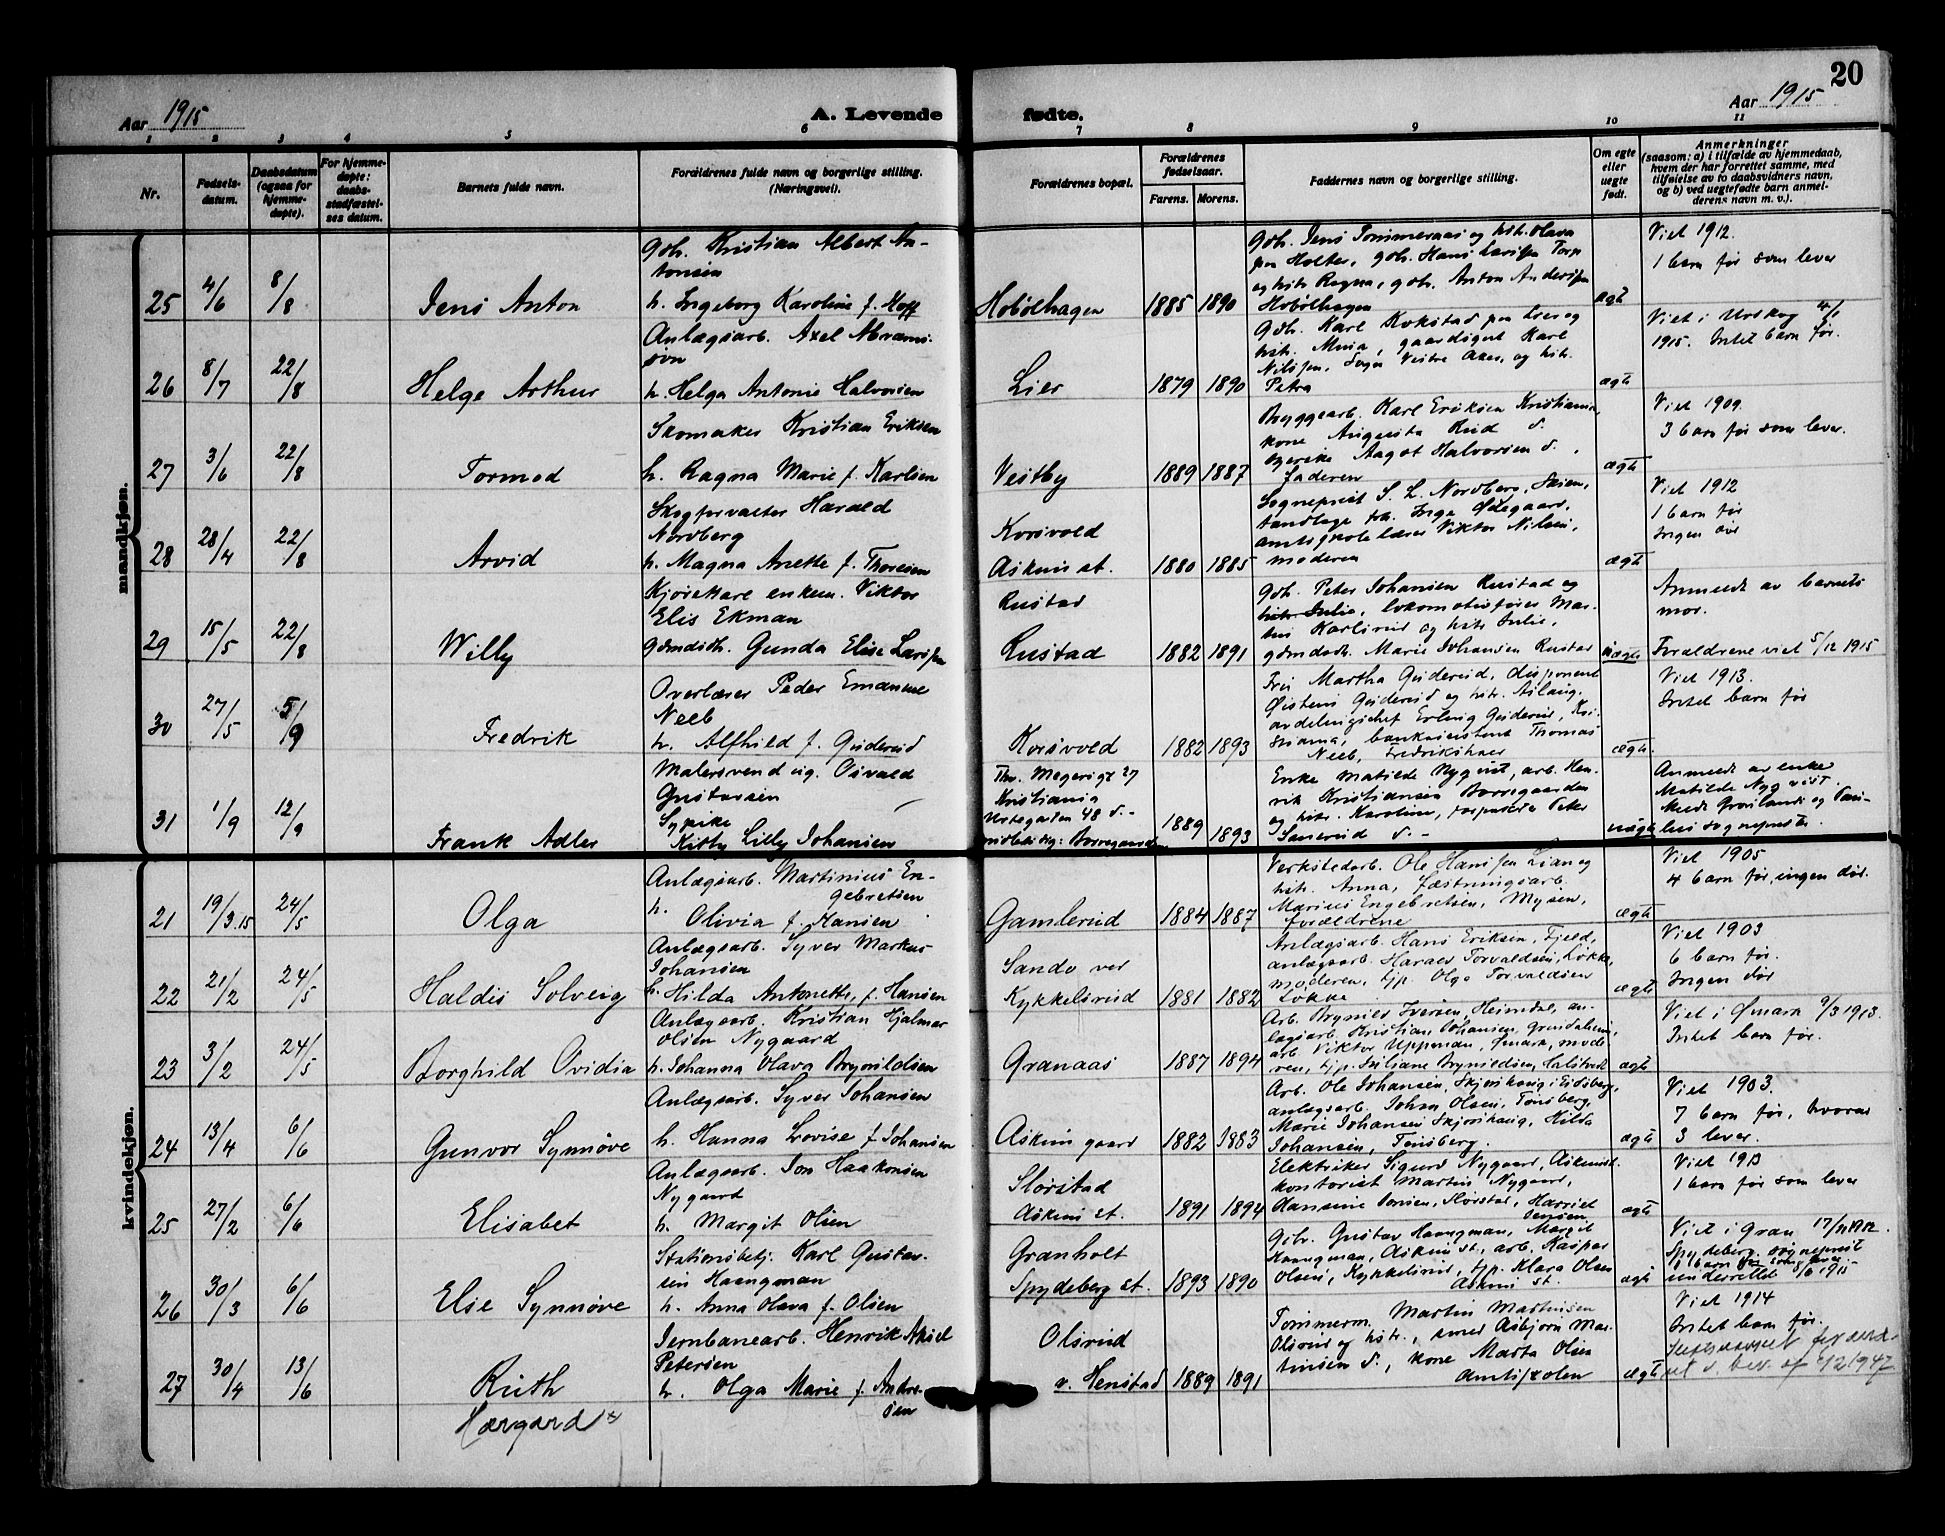 20
Aar 1915
A. Levende
fødte.
Aar 1915
1 2 3 4 5 6 7 8 9 10 11
Nr.
Fødsels-
datum.
Daabsdatum
(ogsaa for
hjemme-
døpte).
For hjemme-
døpte:
daabs-
stadfæstel-
ses datum.
Barnets fulde navn.
Forældrenes fulde navn og borgerlige stilling.
(Næringsvei).
Forældrenes bopæl.
Forældrenes
fødselsaar.
Farens. Morens.
Faddernes navn og borgerlige stilling.
Om egte
eller
uegte
født.
Anmerkninger
(saasom: a) i tilfælde av hjemmedaab,
hvem der har forrettet samme, med
tilføielse av to daabsvidners navn,
og b) ved uegtefødte barn anmel-
derens navn m. v.).
mandkjøn.
25 4/6 8/8 Jens Anton
Gdbr. Kristian Albert An-
tonsen
h. Ingeborg Karoline f. Hoff
Hobølhagen 1885 1890
Gdbr. Jens Tommeraas og hstr. Olava
Holter, gdbr. Hans Larsen Torp
og hstr. Ragna, gdbr. Anton Andersen
Hobølhagen
ægte
Viet 1912.
1 barn før som lever
26 8/7 22/8 Helge Arthur
Anlægsarb. Axel Abrams-
søn
h. Helga Antonie Halvorsen
Lier 1879 1890
Gdbr. Karl Kokstad Lier og
hstr. Mina, gaardsgut Karl
Nilsen, Vestre Aker, og hstr.
Petra
ægte
Viet i Urskog 4/1
1915. Intet barn før.
27 3/6 22/8 Tormod
Skomaker Kristian Eriksen
h. Ragna Marie f. Karlsen
Vestby 1889 1887
Byggearb. Karl Eriksen Kristiania,
kone Augusta Ruud d.
Aagot Halvorsen d.,
faderen
ægte
Viet 1909.
3 barn før som lever.
28 28/4 22/8 Arvid
Skogforvalter Harald
Nordberg
h. Magna Anette f. Thoresen
Korsvold
Askim st. 1880 1885
Sogneprest S. L. Nordberg, Skien,
tandlæge frk. Inga Ødegaard,
amtsskolelærer Viktor Nilsen,
moderen
ægte
Viet 1912
1 barn før
Ingen død
29 15/5 22/8 Willy
Kjørekare enkem. Viktor
Elis Ekman
gdmdtr. Gunda Elise Larsen
Rustad
Rustad 1882 1891
Gdb. Peter Johansen Rustad og
hstr. Julie, lokomotivfører Mar-
tin Karlsrud og hstr. Julie,
gdmdatr. Marie Johansen Rustad
uægte
Anmeldt av barnets
mor.
Forældrene viet 5/12 1915
30 27/5 5/9 Fredrik
Overlærer Peder Emanuel
Neeb
h. Alfhild f. Guderud
Korsvold 1882 1893
Frk Martha Guderud, disponent
Øistein Guderud og hstr. Aslaug,
avdelingschef Erling Guderud, Kri-
stiania, bankassistent Thomas
Neeb, Fredrikshald
ægte.
Viet 1913.
Intet barn før
31 1/9 12/9 Frank Adler
Malersvend ug. Osvald
Gustavsen
Sypike
Kitty Lilly Johansen
Thv. Meyersgt 27
Kristiania
Urtegaden 48 d.
Borregaard
1889 1893
Enke Matilde Nyqvist, arb. Hen-
rik Kristiansen Borregaarden
og hstr. Karoline, Peter
Sanerud d.
uægte
Anmeldt av enke
Matilde Nyqvist.
Meldt Grønlands og
sogneprester.
kvindekjøn.
21 19/3.15 24/5 Olga
Anlægsarb. Martinius En-
gebretsen
h. Olivia f. Hansen
Gamlerud 1884 1887
Verkstedarb. Ole Hansen Lian og
hstr. Anna, fæstningsarb.
Marius Engebretsen, Mysen,
forældrene
ægte
Viet 1905
4 barn før, ingen død.
22 21/2 24/5 Haldis Solveig
Anlægsarb. Syver Markus
Johansen
h. Hilda Antonette f. Hansen
Sando ved
Kykkelsrud 1881 1882
Anlægsarb. Hans Eriksen, Fjeld,
anlægsarb. Harald Torvaldsen, Løkka,
moderen, tjp. Olga Torvaldsen
Løkke
ægte
Viet 1903
6 barn før.
Ingen død
23 3/2 24/5 Borghild Ovidia
Anlægsarb. Kristian Hjalmar
Olsen Nygaard
h. Johanna Olava Brynildsen
Granaas 1887 1894
Arb. Brynild Iversen, Heimdal, an-
lægsarb. Kristian Johansen,
arb. Viktor Uppman, Ømark, mode-
ren, tjp. Juliane Brynildsen
ægte
Viet i Ømark 9/3 1913.
Intet barn før.
24 13/4 6/6 Gunvor Synnøve
Anlægsarb. Syver Johansen
h. Hanna Lovise f. Johansen
Askim gaard 1882 1883
Arb. Ole Johansen, Skjørshaug i Eidsberg,
anlægsarb. Johan Olsen, Tønsberg,
Marie Johansen Skjørshaug, Hilda
Johansen, Tønsberg.
ægte
Viet 1903.
7 barn før, hvorav
3 lever.
25 27/2 6/6 Elisabet
Anlægsarb. Jon Haakonsen
Nygaard
h. Margit Olsen
Slorstad
Askim st. 1891 1894
Elektriker Sigurd Nygaard, Askimst.
kontorist Martin Nygaard,
Hansine Jonsen, Slorstad, Harriet
Jensen
ægte
Viet 1913
1 barn før som lever
26 30/3 6/6 Else Synnøve
Stationsbetj. Karl Gustav-
sen Haangman
h. Anna Olava f. Olsen
Granholt
Spydeberg st. 1893 1890
Gdbr. Gustav Haangman, Margit
Haangman, Askim st., arb. Kaspar
Olsen, Kykkelsrud, tjp. Klara Olsen
Askim st.
ægte
Viet i Gran 17/11 1912.
Spydeberg sogneprest
underrettet 8/6 1915
27 30/4 13/6 Ruth
Hærgard
Jernbanearb. Henrik Aksel
Petersen
h. Olga Marie f. Andre-
sen
Olsrud
v. Henstad 1889 1891
Tømmerm. Martin Martinsen
Olsrud og hstr., smed Asbjørn Mar-
tinsen d., kone Marta Olsen
Amtsskolen
ægte
Viet 1914
Intet barn før.